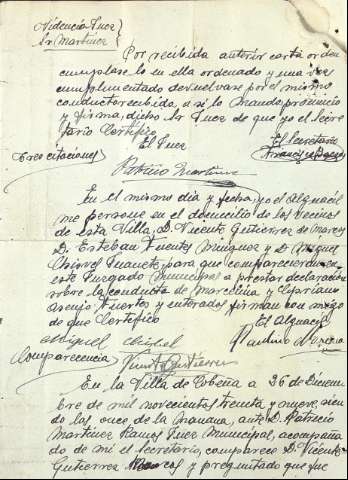 Videncia Juez
Sr Martinez
Por recibida anterior carta orden
cumplase lo en ella ordenado y una vez
cumplimentado devuelvase por el mismo
conducto recibida, asi lo mando pronuncio
y firma, dicho Sr Juez de que yo el Secre
tario Certifico
El Juez
El Secretario
Tres citaciones
Patricio Martinez
En el mismo dia y fecha yo el Alguacil
me persone en el domicilio de los vecinos
de esta Villa, D. Vicente Gutierrez de Marcos
D. Esteban Fuentes Minguez y D. Miguel
para que comparecieran en
este Juzgado Municipal a prestar declaración
sobre la conducta de Marcelina y Cipriano
Asenjo Fuertes y enterados firman conmigo
de que Certifico
El Alguacil
Miguel
Comparecencia
Vicente Gutierrez
En la Villa de Cobeña a 26 de Diciem
bre de mil novecientos treinta y nueve, sien
do las once de la mañana, ante D. Patricio
Martinez Ramos Juez Municipal, acompaña
do de mi el Secretario, comparece D. Vicente
Gutierrez Marcos y preguntado que que